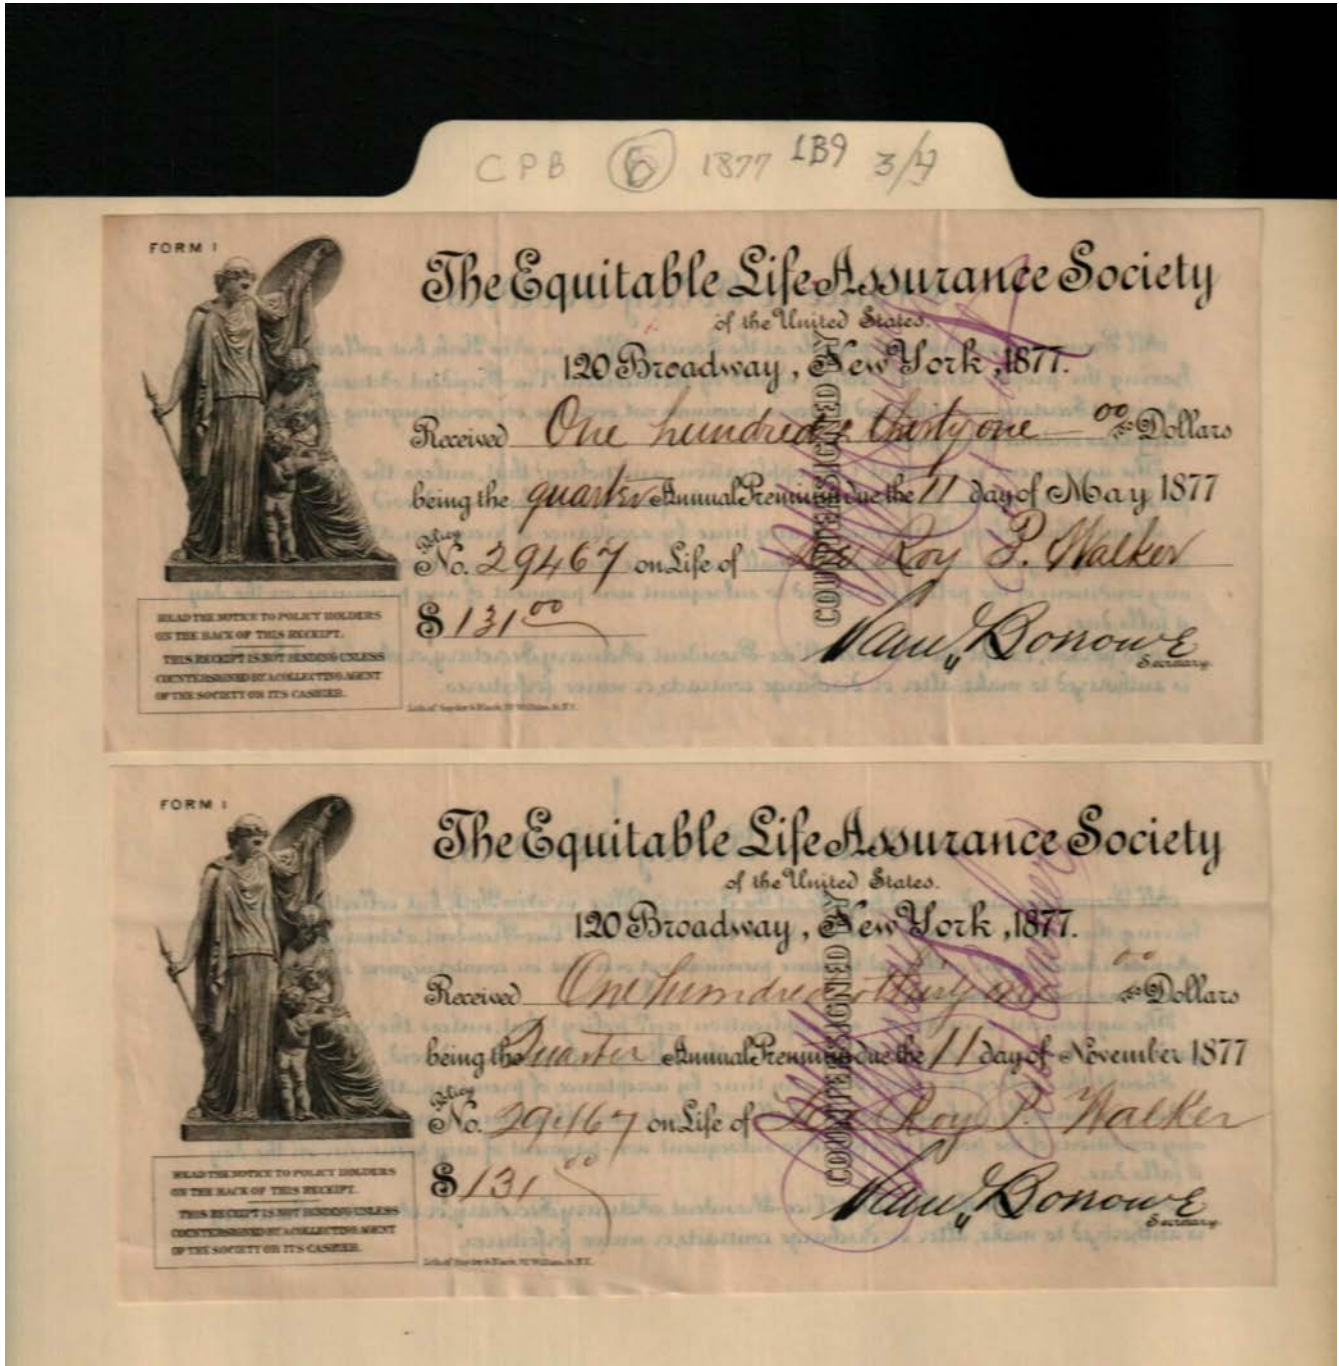 CPB 6 1877 1B9 3/4
FORM 1
The Equitable Life Assurance Society
of the United States.
120 Broadway, New York, 1877.
Received One hundred & thirty one 00/100 Dollars
being the quarter Annual Premium due the 11 day of May 1877
Policy
No. 29467 on Life of Le Roy P. Walker
$ 131 00
COUNTERSIGNED BY
Cashier
Saml. Borrowe
Secretary.
READ THE NOTICE TO POLICY HOLDERS
ON THE BACK OF THIS RECEIPT.
THIS RECEIPT IS NOT BINDING UNLESS
COUNTERSIGNED BY A COLLECTING AGENT
OF THE SOCIETY OR ITS CASHIER.
FORM 1
The Equitable Life Assurance Society
of the United States.
120 Broadway, New York, 1877.
Received One hundred & thirty one 00/100 Dollars
being the Quarter Annual Premium due the 11 day of November 1877
Policy
No. 29467 on Life of Le Roy P. Walker
$ 131 00
COUNTERSIGNED BY
Cashier
Saml. Borrowe
Secretary.
READ THE NOTICE TO POLICY HOLDERS
ON THE BACK OF THIS RECEIPT.
THIS RECEIPT IS NOT BINDING UNLESS
COUNTERSIGNED BY A COLLECTING AGENT
OF THE SOCIETY OR ITS CASHIER.